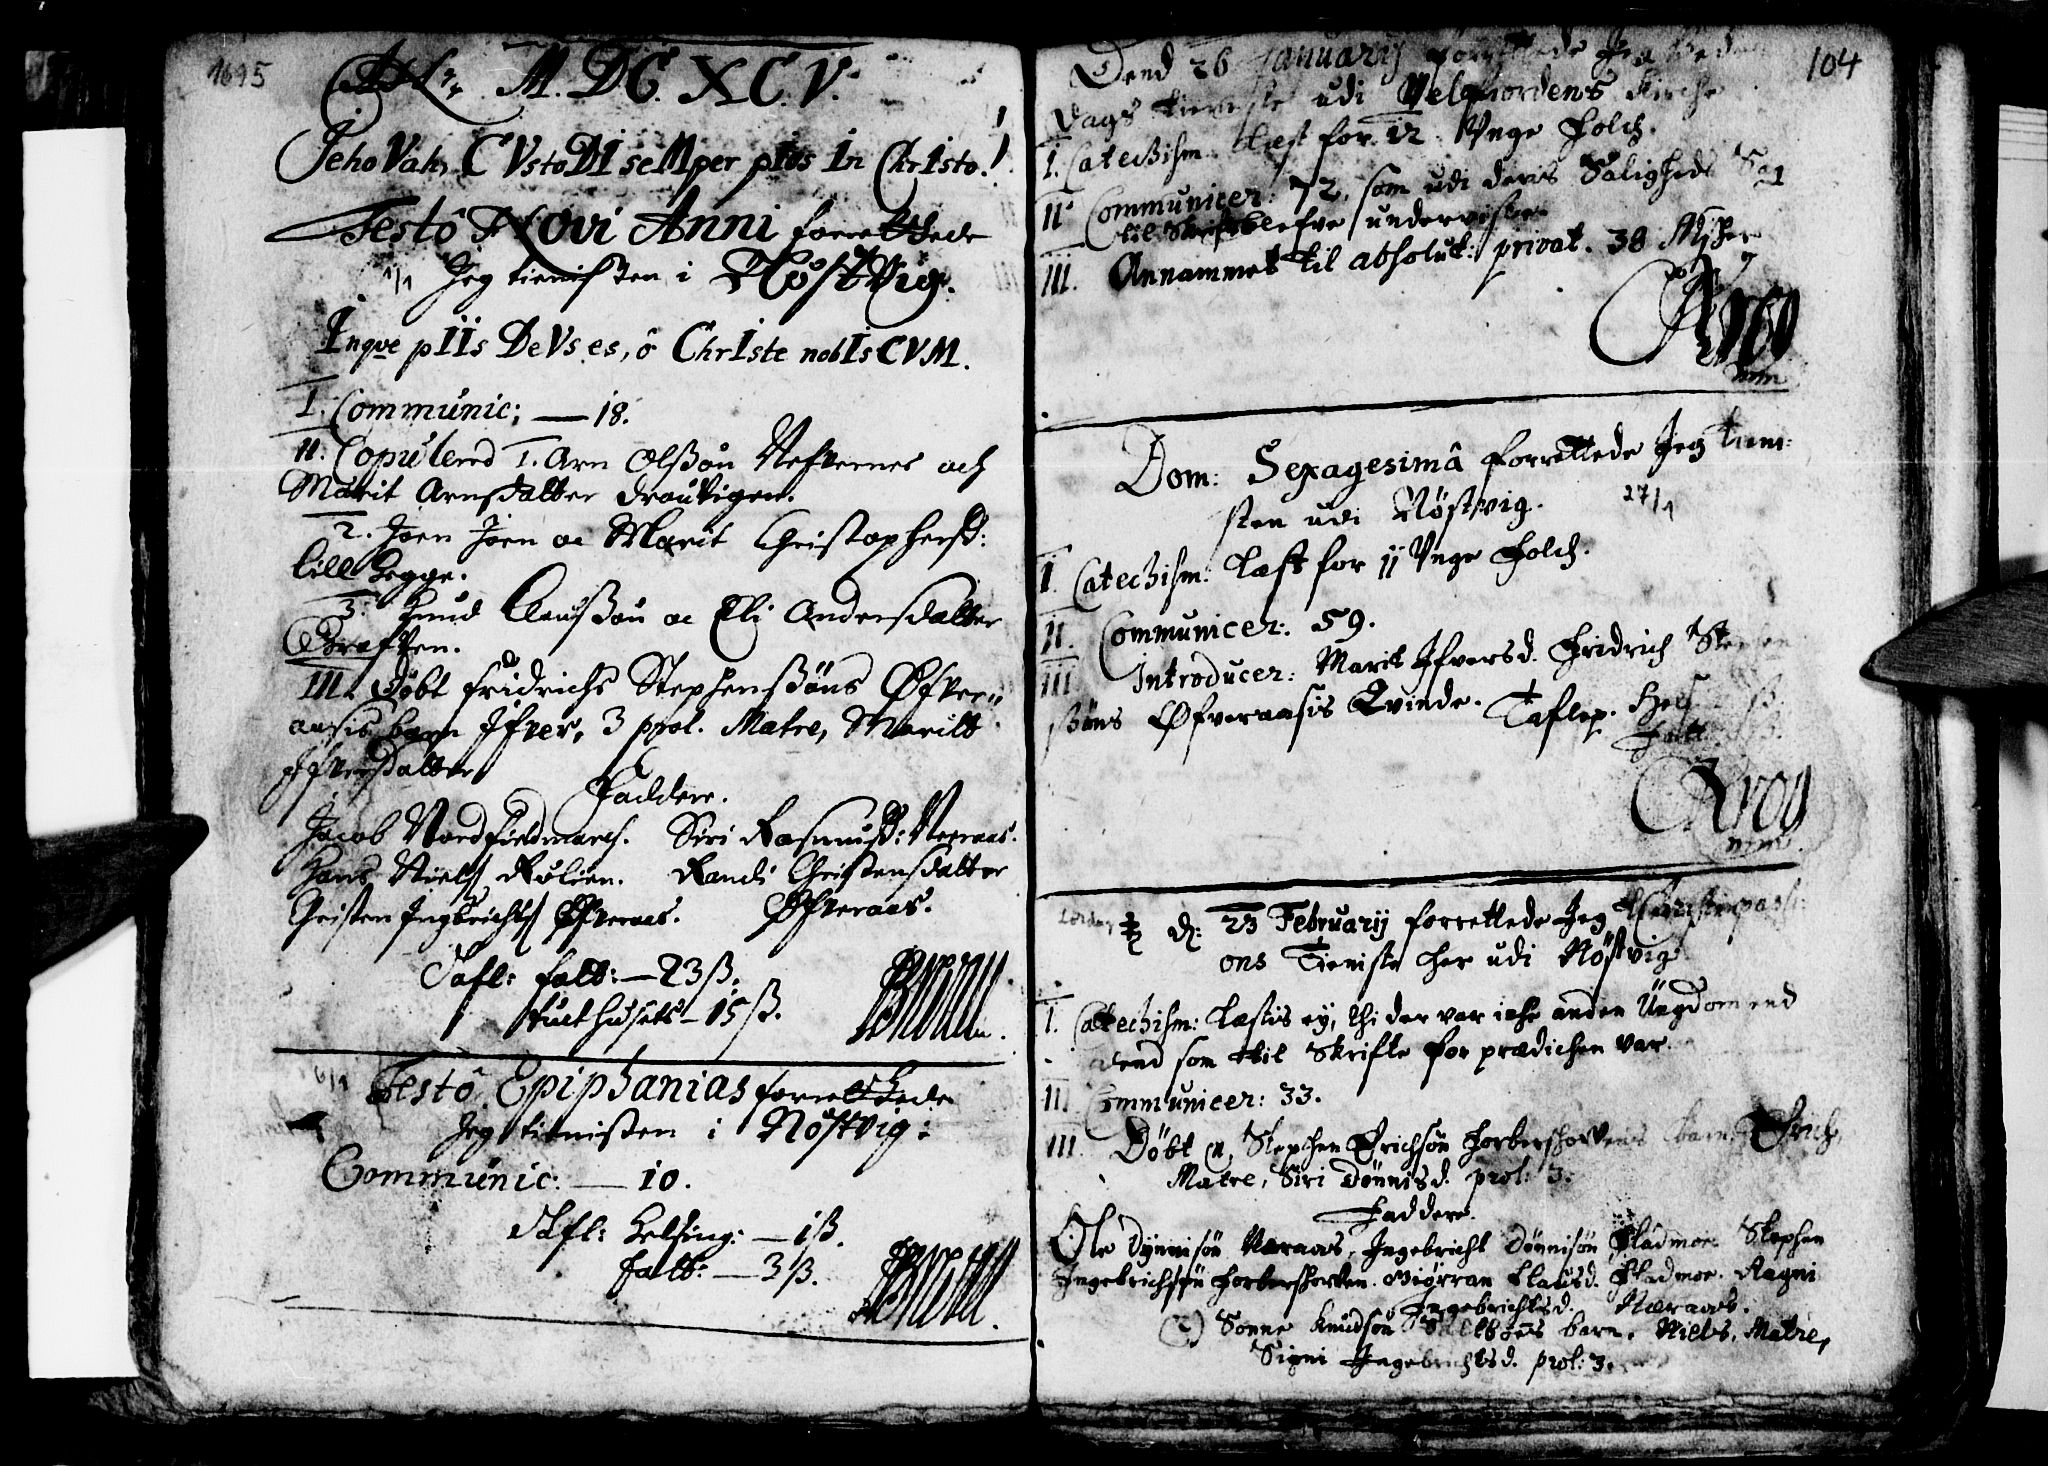 1695
M. DC. XC. V.
JehoVah, CVstoDI seMper pIos In ChrIsto!
Festô Novi Anni forrettede
1/1 Jeg tienisten i Nöstvig.
Inqve pIIs DeVs es, ô ChrIste nobIsCVM.
I. Communic: — 18.
II. Copulered 1. Arn Olßøn Nefvernes och
Marit Arnsdatter Drauvigen.
2. Joen Joen oc Marit Christophersd:
lill Hegge.
3. Knud Clausßøn oc Eli Andersdatter
Graftten.
III. Döbt Fridrichs Stephenßöns Øfver-
aasis barn Ifver, 3 prol. Matre, Maritt
Ifversdatter
Faddere.
Jacob Nordfieldmarch. Siri Rasmusd: Neeraas.
Hans Niels Rölien. Randi Christensdatter
Christen Ingbrichts Øfveraas. Øfveraas.
Tafl: fatt: — 23 ß.
tuct husets — 15 ß.
6/1 Festô Epiphanias forrettede
Jeg tienisten i Nöstvig:
Communic: — 10.
Tafl: Helsing: — 1 ß.
fatt: — 3 ß.
104
Dend 26 Januarij forrettede Jeg Bede
dags tieniste udi Velgiordens Kirche
I. Catechism: Læst for 12 Unge Folch.
II. Communicer: 72, som udi deris Saligheds Sag
til Skrifte blefve underviste
III. Annammet til absolut: privat. 38
Krog
mm
Dom: Sexagesimâ forrettede Jeg tieni-
sten udi Nöstvig. 27/1
I. Catechism: Læst for 11 Unge Folch.
II. Communicer: 59.
III Introducer: Marit Ifversd. Fridrich Stephen
ßöns Øfveraasis Qvinde. Taflep. Hels ß.
fatt
Krog
mm.
Lørdag d: 23 Februarij forrettede Jeg
ons Tieniste her udi Nöstvig
I. Catechism: Læstis ey, thi der var iche anden Ungdom end
dend som til Skrifte for prædichen var.
II. Communicer: 33.
III. Döbt 1, Stephen Erichsøn barn, Erich,
Matre, Siri Dönnisd. prol: 3.
Faddere.
Ole Dynnisøn Næraas, Ingebricht Dönnisön Fladmoe. Stephen
Ingebrichsøn Giørran Clausd. Fladmoe. Ragni
Ingebrichtsd. Næraas.
2) Sonne Knudsøn barn, Niels, Matre,
Signi Ingebrichtsd. prol: 3.